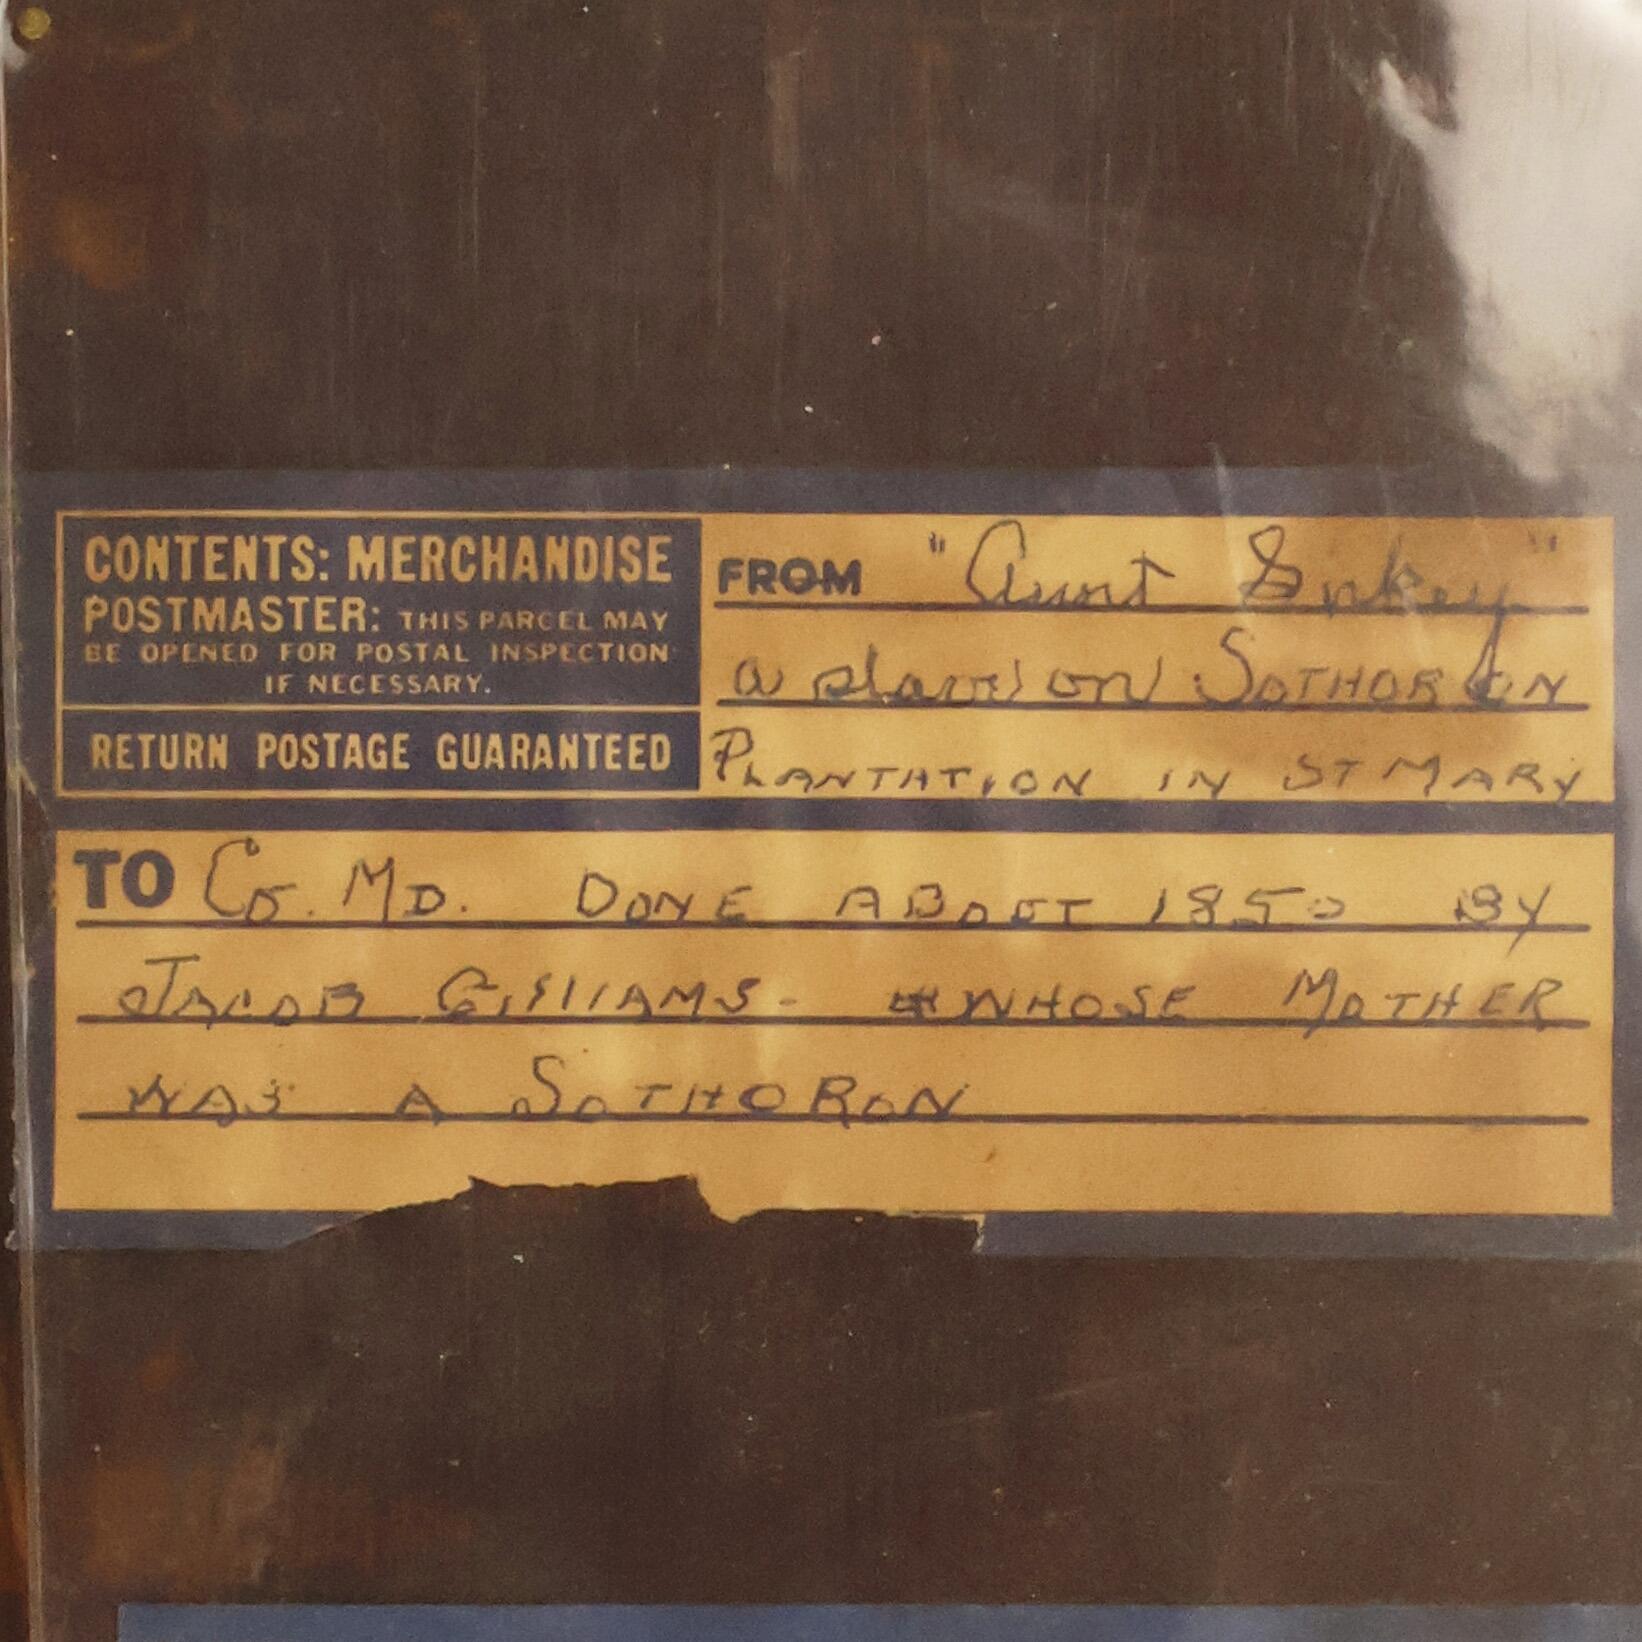 CONTENTS: MERCHANDISE
POSTMASTER: THIS PARCEL MAY
BE OPENED FOR POSTAL INSPECTION
IF NECESSARY.
RETURN POSTAGE GUARANTEED
FROM "Aunt
a slave on SOTHORON
PLANTATION IN ST MARY
TO CO. MD. DONE ABOUT 1850 BY
JACOB GILLIAMS - WHOSE MOTHER
WAS A SOTHORON